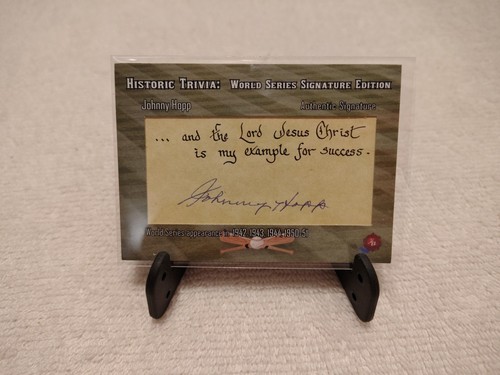 HISTORIC TRIVIA: WORLD SERIES SIGNATURE EDITION
Johnny Hopp Authentic Signature
... and the Lord Jesus Christ
is my example for success.
Johnny Hopp
World Series appearances in 1942, 1943, 1944, 1950, 51